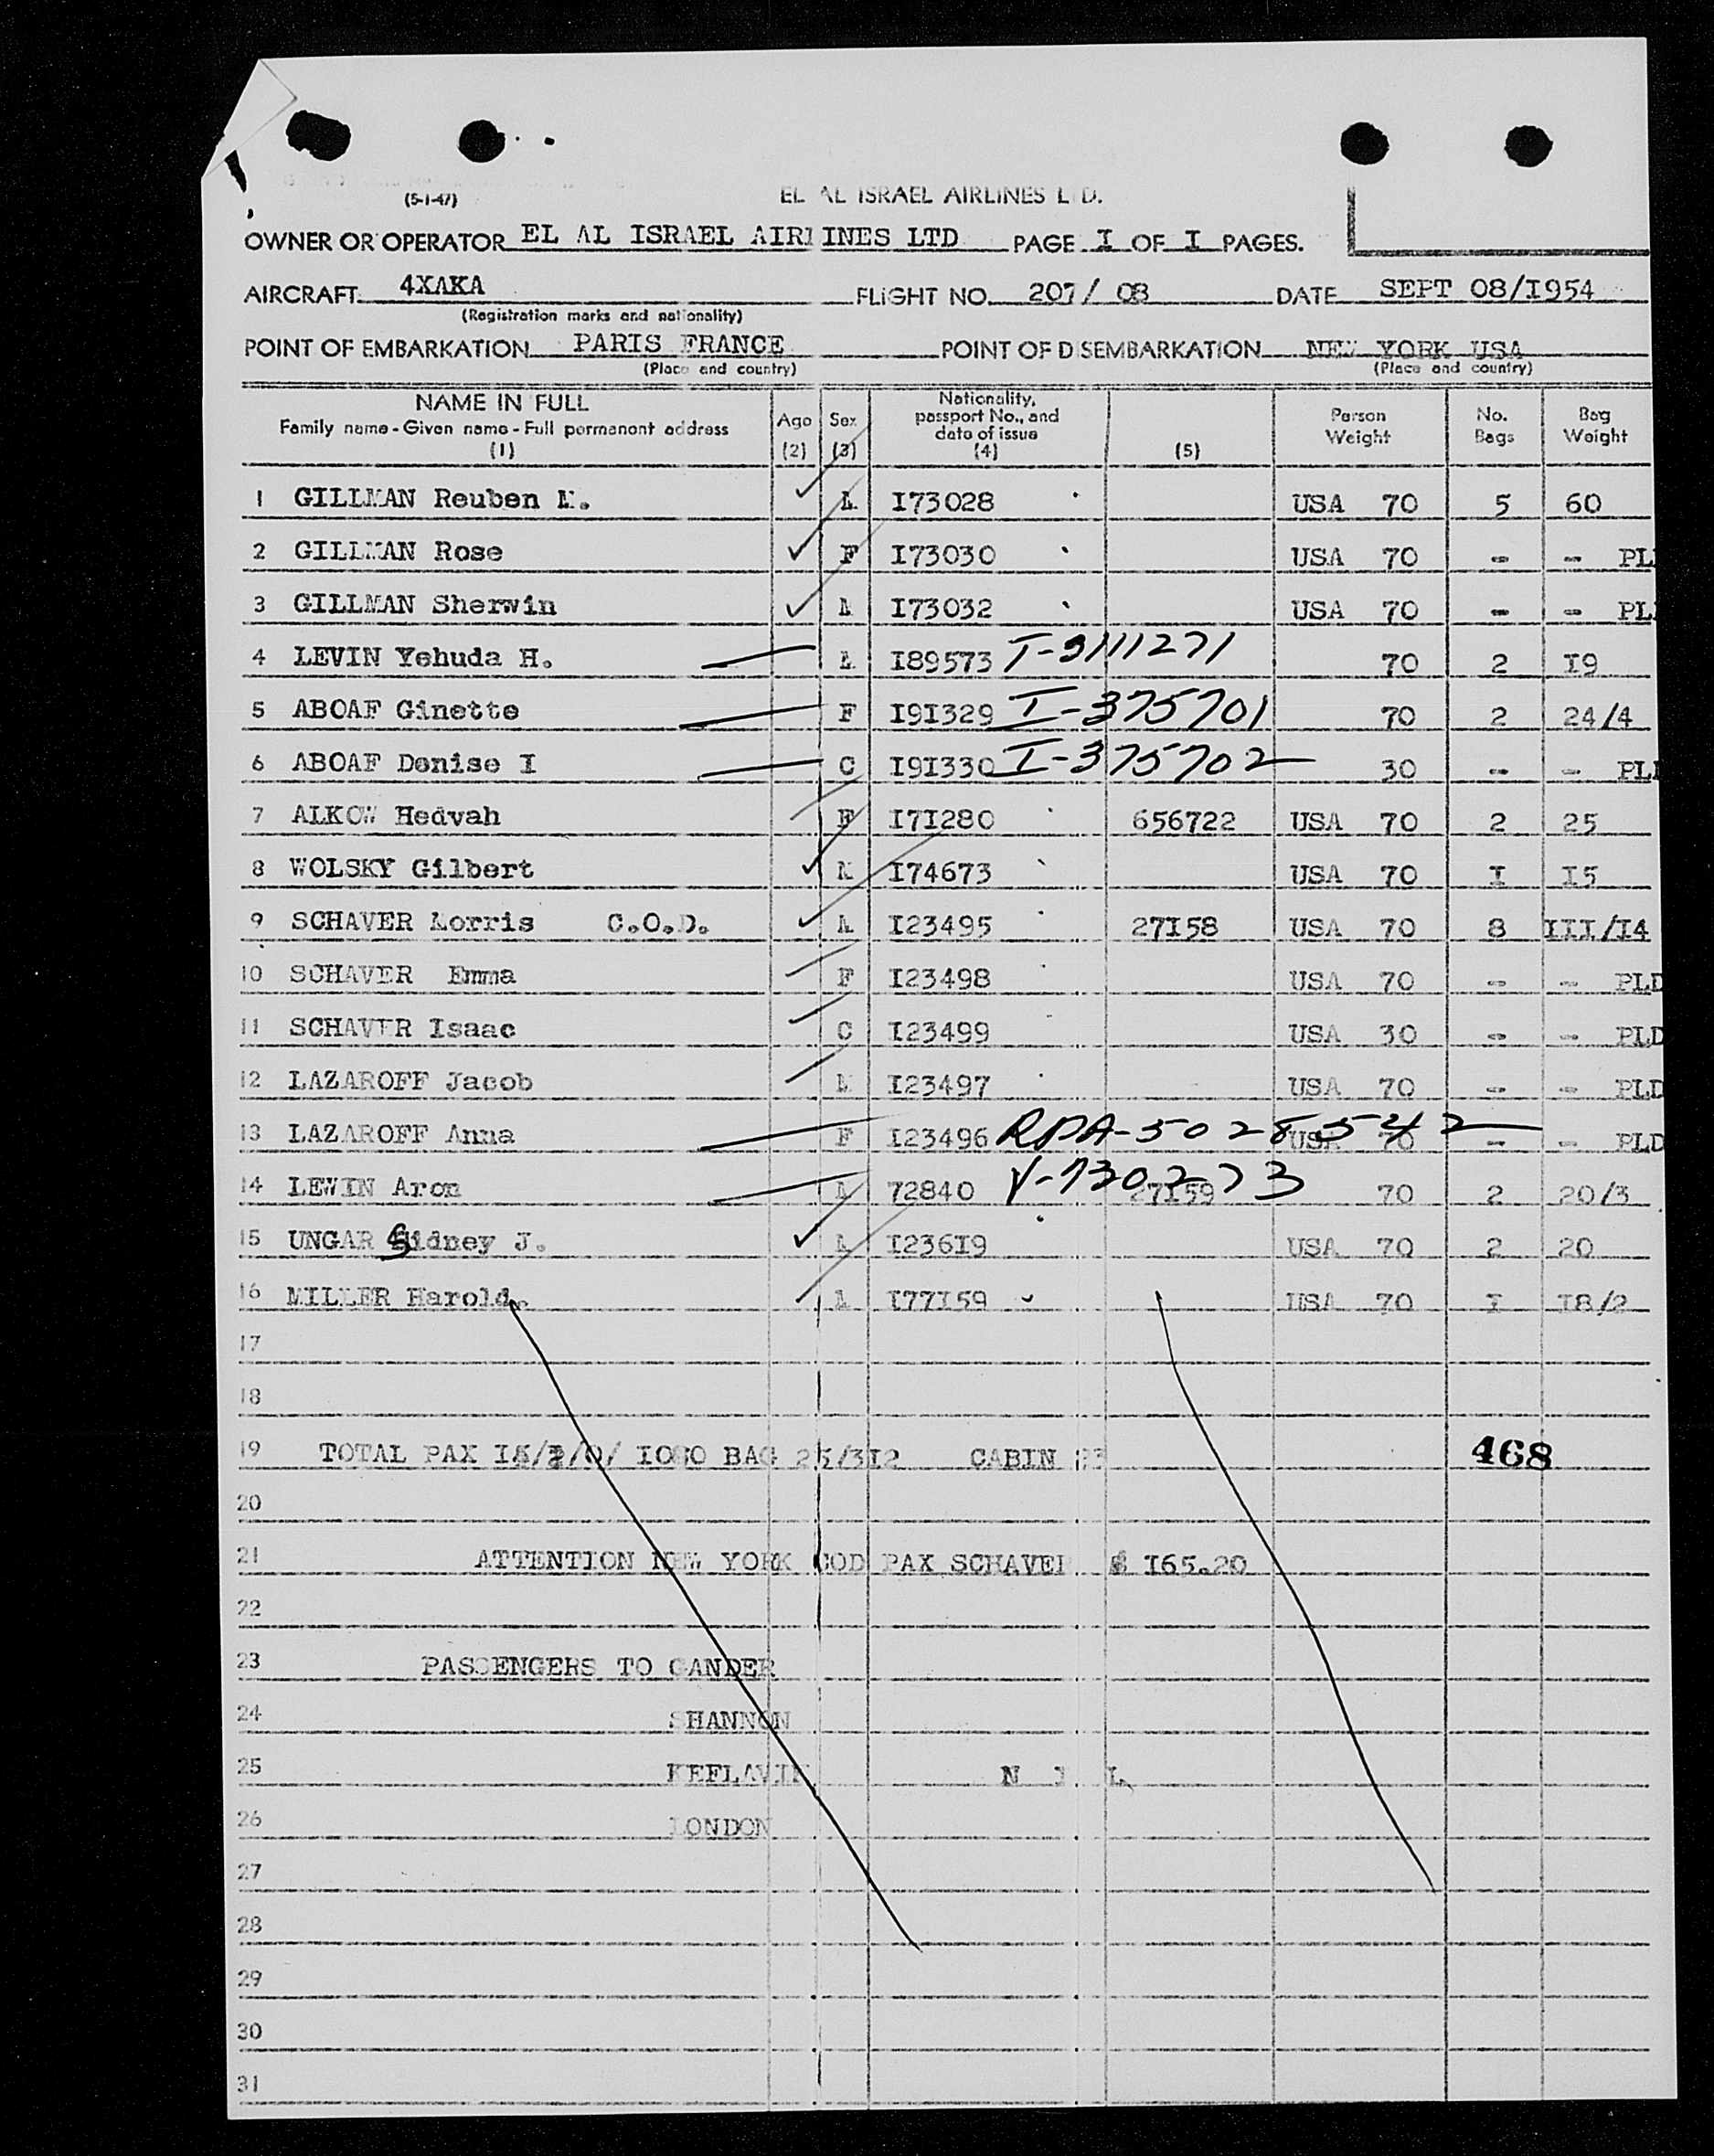 (5-1-47) EL AL ISRAEL AIRLINES L D.
OWNER OR OPERATOR EL AL ISRAEL AIRLINES LTD PAGE I OF I PAGES.
AIRCRAFT 4XAKA FLIGHT NO. 207/ 08 DATE SEPT 08/I954
(Registration marks and nationality)
POINT OF EMBARKATION PARIS FRANCE POINT OF DISEMBARKATION NEW YORK USA
(Place and country) (Place and country)
NAME IN FULL Age Sex Nationality, passport No., and date of issue Person Weight No. Bags Bag Weight
Family name - Given name - Full permanent address
(1) (2) (3) (4) (5)
1 GILLMAN Reuben M. M I73028 USA 70 5 60
2 GILLMAN Rose F I73030 USA 70 - - PL
3 GILLMAN Sherwin M I73032 USA 70 - - PL
4 LEVIN Yehuda H. M I89573 T-9111271 70 2 I9
5 ABOAF Ginette F I9I329 I-375701 70 2 24/4
6 ABOAF Denise I C I9I330 I-375702 30 - - PL
7 ALKOW Hedvah F I7I280 656722 USA 70 2 25
8 WOLSKY Gilbert M I74673 USA 70 I I5
9 SCHAVER Morris C.O.D. M I23495 27I58 USA 70 8 III/I4
10 SCHAVER Emma F I23498 USA 70 - - PLD
11 SCHAVER Isaac C I23499 USA 30 - - PLD
12 LAZAROFF Jacob M I23497 USA 70 - - PLD
13 LAZAROFF Anna F I23496 RPA-5028542 USA 70 - - PLD
14 LEWIN Aron M 72840 V-730273 27I59 70 2 20/3
15 UNGAR Sidney J. M I236I9 USA 70 2 20
16 MILLER Harold. M I77I59 USA 70 I I8/2
17
18
19 TOTAL PAX /0/ BAG 25/3I2 CABIN 23 468
20
21 ATTENTION NEW YORK COD PAX SCHAVER $ I65.20
22
23 PASSENGERS TO GANDER
24 SHANNON
25 KEFLAVIK N I L
26 LONDON
27
28
29
30
31